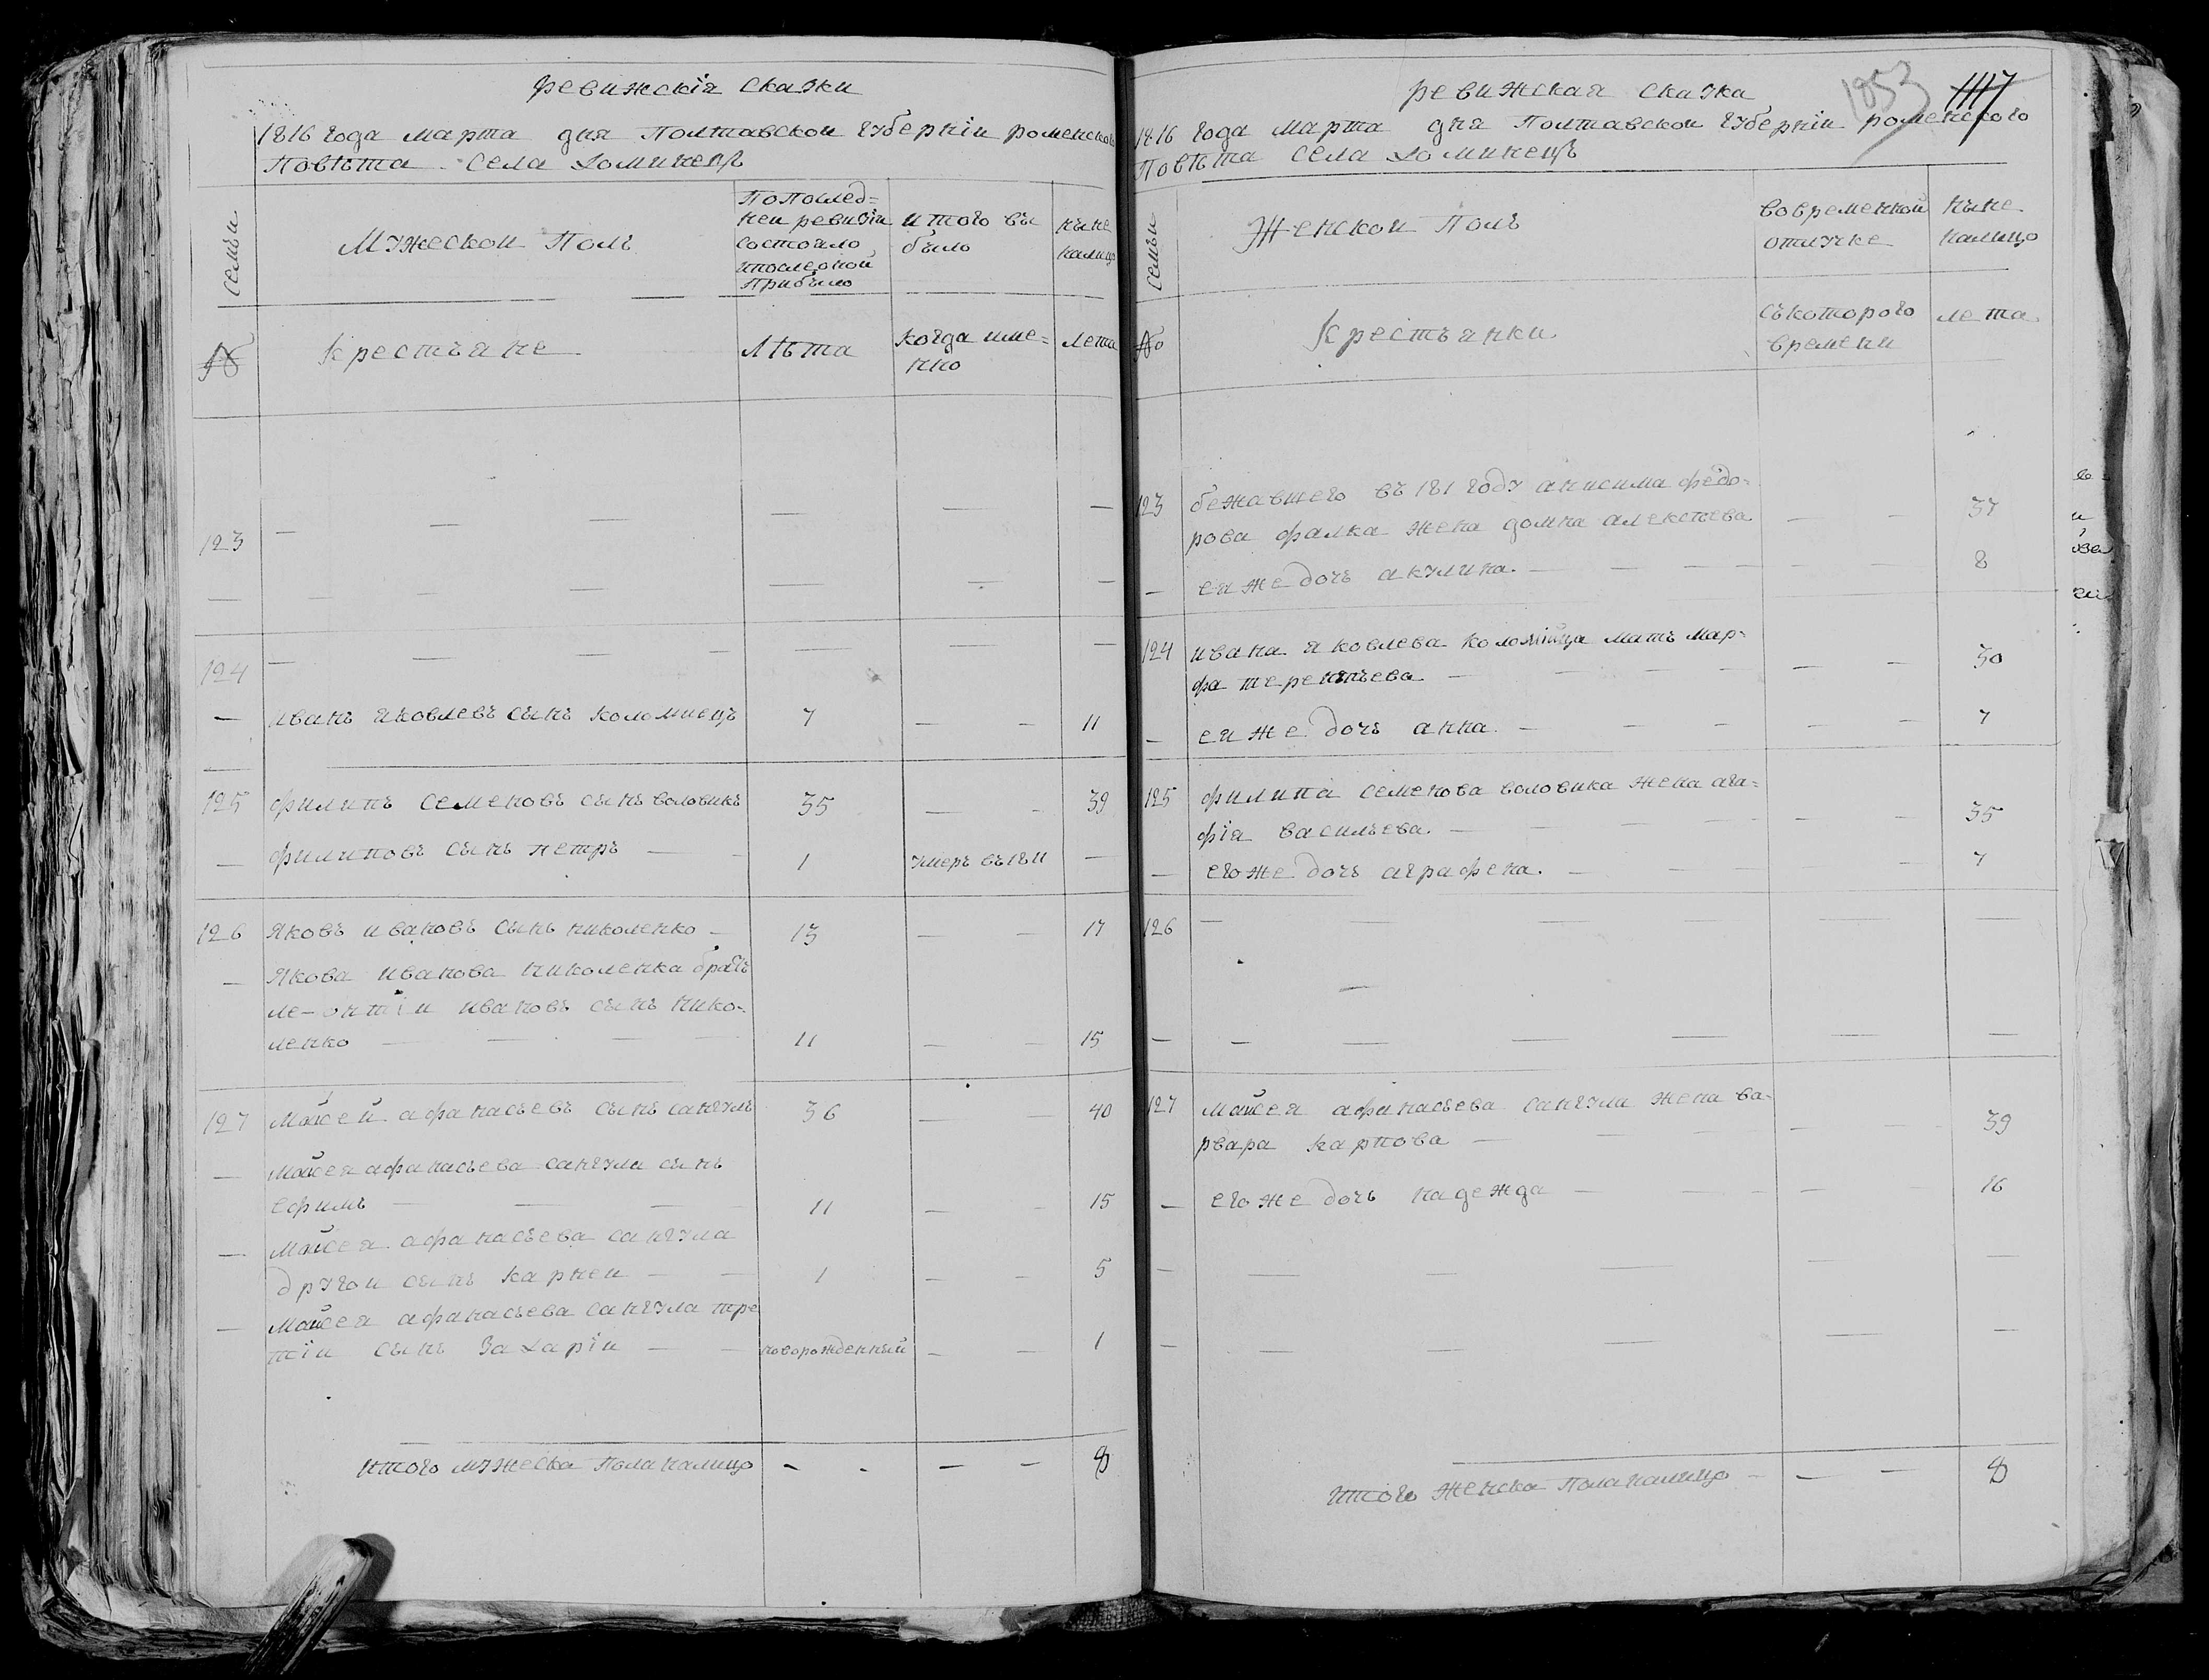 ревижскія скаски
1816 года марта дня Полтавскои губерніи роменского
Повѣта села Хоминецъ
семьи
Мужескои Полъ
Попослед=
неи ревизіи
состояло
ипоследной
прибыло
итого вы
было
ныне
налицо
№
Крестьяне
Лѣта
когда име=
нно
лета
123
124
иванъ яковлевъ сынъ коломиецъ 7 11
125 филипъ семеновъ сынъ воловикъ 35 39
филиповъ сынъ петръ 1 умеръ въ1811
126 Яковъ ивановъ сынъ николенко 13 17
Якова иванова николенка братъ
ле-онтіи ивановъ сынъ нико-
ленко 11 15
127 Мойсей афанасьевъ сынъ сангулъ 36 40
Мойсея афанасьева сангула сынъ
ефимъ 11 15
Мойсея афанасьева сангула
другои сынъ карпеи 1 5
Мойсея афанасьева сангула тре
тіи сынъ Захаріи новорожденный 1
Итого мужеска Пола налицо 8
ревижская скаска
1853 1117
1816 года марта дня Полтавскои губерніи роменского
Повѣта села Хоминецъ
семьи
Женскои Полъ
вовременной
отлучке
ныне
налицо
№
Крестьянки
съкоторого
времени
лета
123 бежавшего въ 181 году анисима федо-
рова фалка жена домна алексѣева 37
ея же дочь акулина. 8
124 ивана яковлева коломійца мать мар-
фа терентьева 30
ея же дочь анна. 7
125 филипа семенова воловика жена ага=
фія васильева. 35
его же дочь аграфена. 7
126
127 мойсея афанасьева сангула жена ва-
рвара карпова 39
его же дочь надежда 16
Итого женска Пола налицо 8